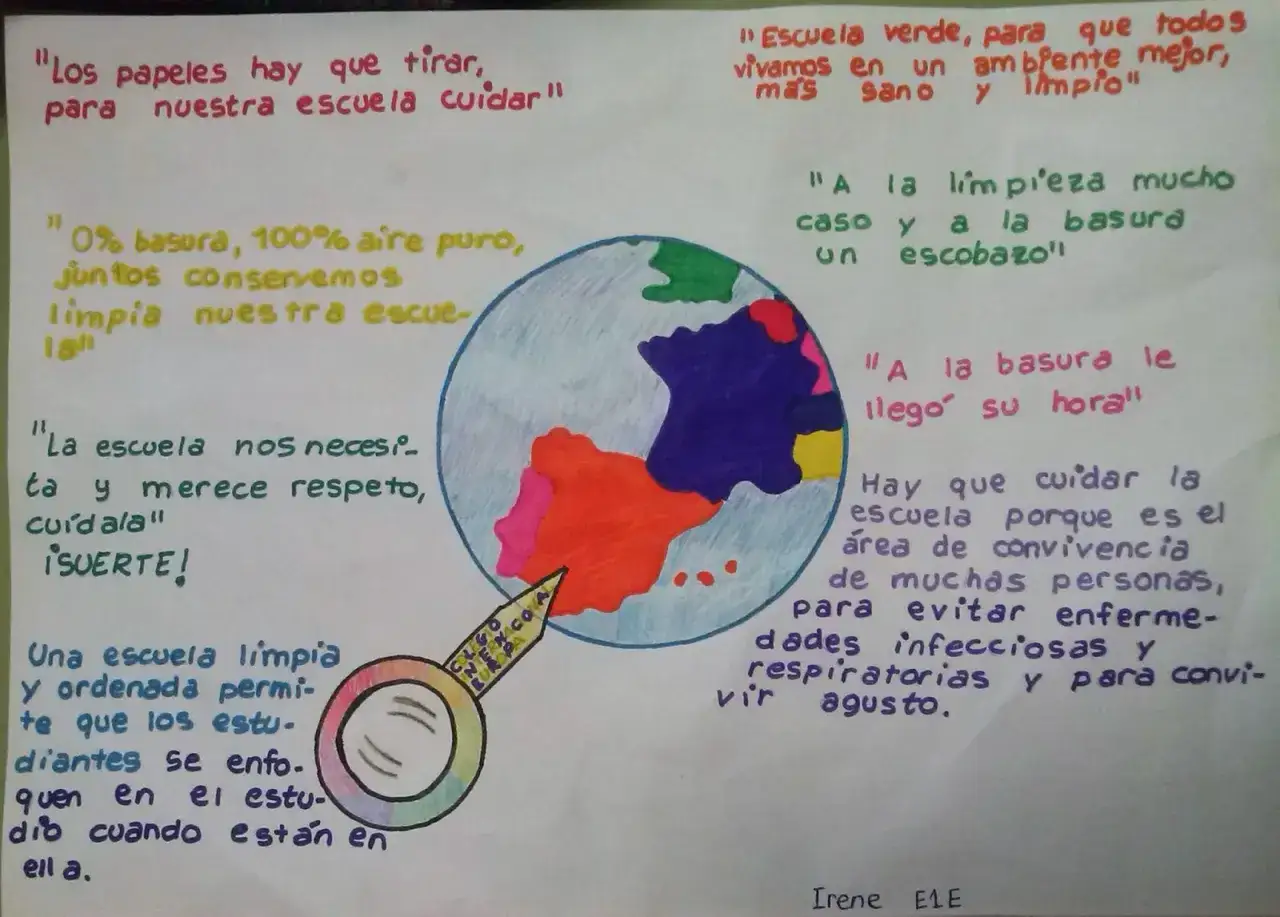 "Los papeles hay que tirar,
para nuestra escuela cuidar"
"Escuela verde, para que todos
vivamos en un ambiente mejor,
más sano y limpio"
"A la limpieza mucho
caso y a la basura
un escobazo"
"0% basura, 100% aire puro,
juntos conservemos
limpia nuestra escue-
la"
"A la basura le
llegó su hora"
"La escuela nos necesi-
ta y merece respeto,
cuídala"
¡SUERTE!
Hay que cuidar la
escuela porque es el
área de convivencia
de muchas personas,
para evitar enferme-
dades infecciosas y
respiratorias y para convi-
vir agusto.
Una escuela limpia
y ordenada permi-
te que los estu-
diantes se enfo-
quen en el estu-
dio cuando están en
ella.
Irene E1E